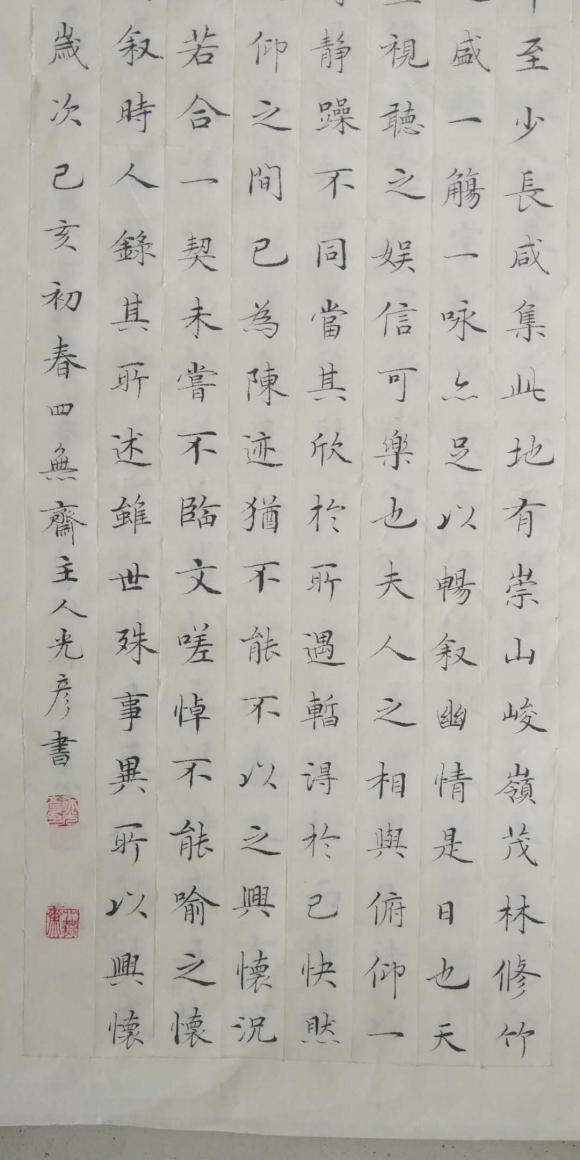 至少長咸集此地有崇山峻嶺茂林修竹
盛一觴一咏亦足以暢叙幽情是日也天
視聽之娱信可樂也夫人之相與俯仰一
静躁不同當其欣於所遇暫得於己快然
仰之間已為陳迹猶不能不以之興懷況
若合一契未嘗不臨文嗟悼不能喻之懷
叙時人錄其所述雖世殊事異所以興懷
歲次己亥初春四無齋主人光彦書